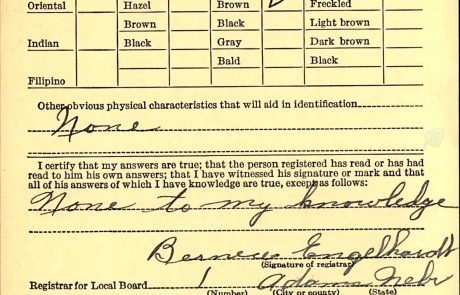 Oriental Hazel Brown ✓ Freckled
Brown Black Light brown
Indian Black Gray Dark brown
Bald Black
Filipino
Other obvious physical characteristics that will aid in identification
None
I certify that my answers are true; that the person registered has read or has had
read to him his own answers; that I have witnessed his signature or mark and that
all of his answers of which I have knowledge are true, except as follows:
None to my knowledge
Bernice Engelhardt
(Signature of registrar)
Registrar for Local Board 1 Adams Nebr
(Number) (City or county) (State)